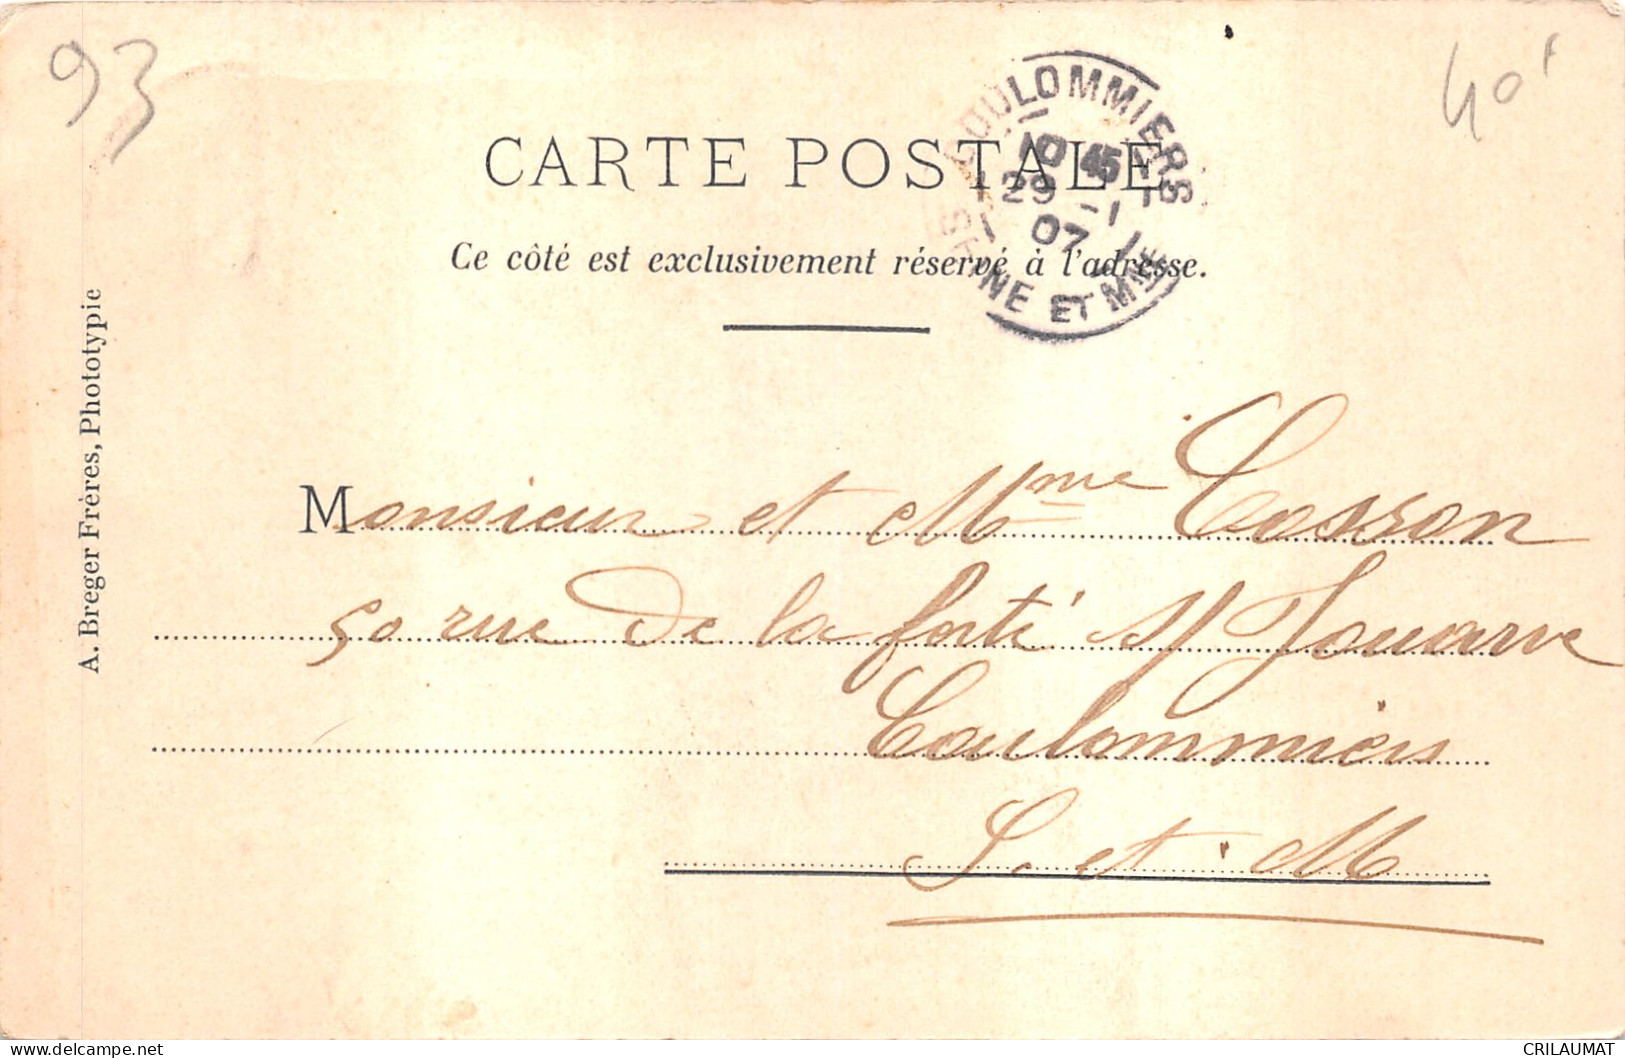 93
40F
COULOMMIERS
10 45
29 -1
07
SEINE ET MNE
CARTE POSTALE
Ce côté est exclusivement réservé à l'adresse.
A. Breger Frères, Phototypie
Monsieur et Mme Cosson
50 rue de la ferté s/ Jouarre
Coulommiers
S. et M
CRILAUMAT